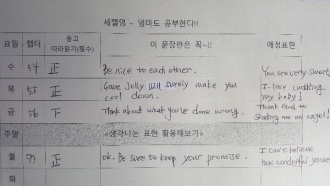 세젤영 - 엄마도 공부한다!!
요일 챕터 듣고 따라읽기(횟수) 이 문장만은 꼭~!! 애정표현
수 54 正 Be nice to each other. You are very smart
목 55 正 Game Jelly will surely make you cool down. I love cuddling my baby!
금 56 下 Think about what you've done wrong. Thank God to sending me an angel!
주말 <생각나는 표현 활용해보기>
월 正 ok. Be sure to keep your promise. I can't believe how wonderful you're
화